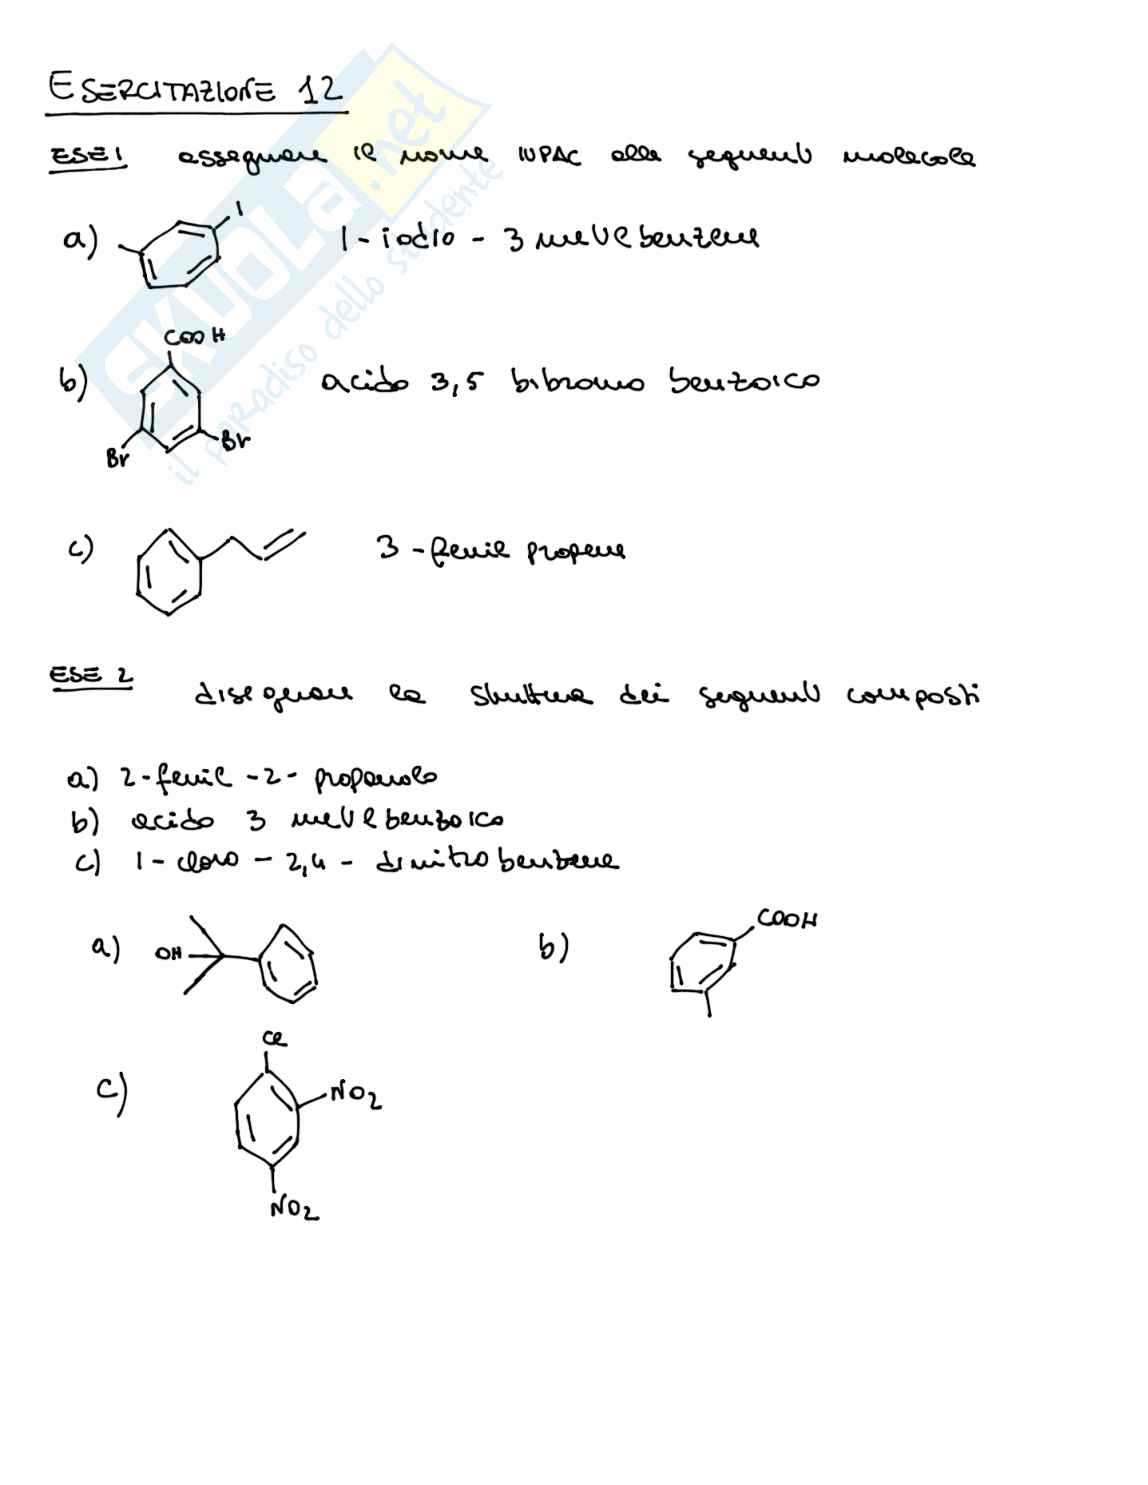 ESERCITAZIONE 12
ESE 1 assegnare il nome IUPAC alla seguenti molecola
a) I 1-iodio-3 metilbenzene
COOH
b) acido 3,5 bibromo benzoico
Br Br
c) 3-fenil propene
ESE 2 disegnare la struttura dei seguenti composti
a) 2-fenil-2-propanolo
b) acido 3 metilbenzoico
c) 1-cloro-2,4-dinitrobenzene
a) OH b) COOH
Cl
c) NO2
NO2
SKUOLA.net
il paradiso dello studente